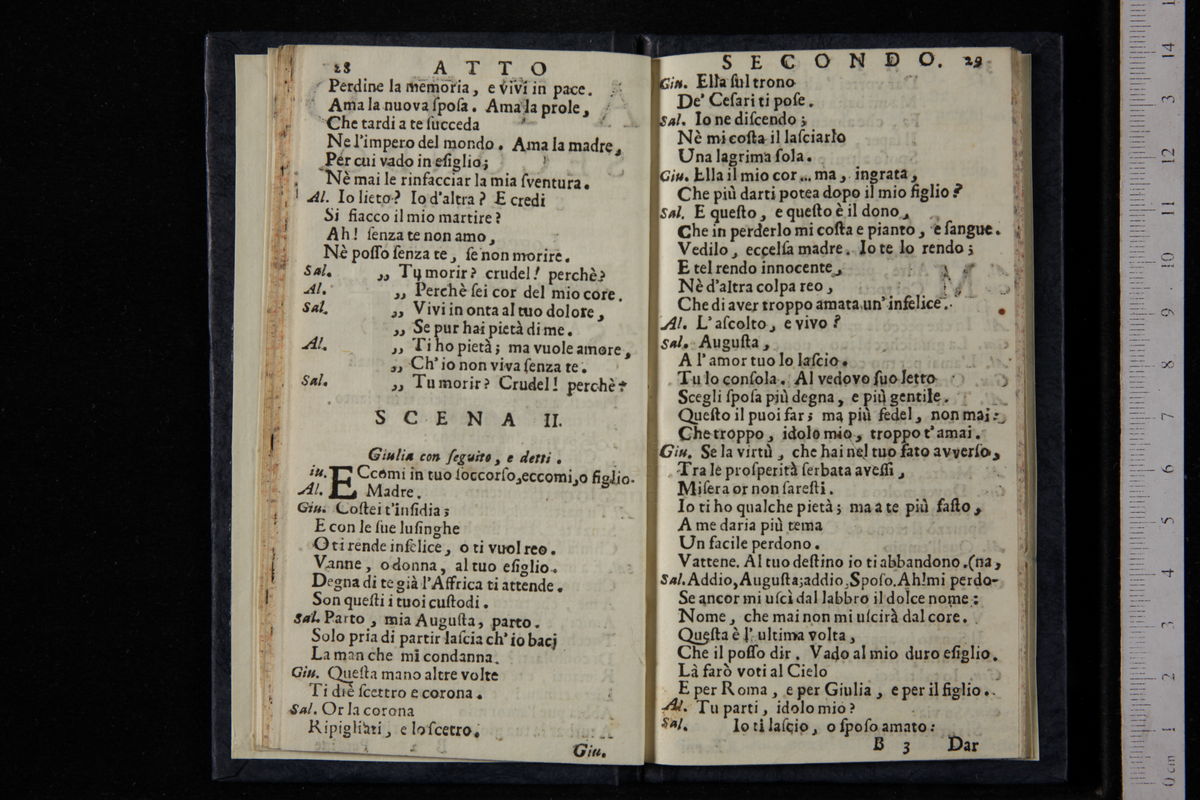 28 ATTO
Perdine la memoria, e vivi in pace.
Ama la nuova ſpoſa. Ama la prole,
Che tardi a te ſucceda
Ne l'impero del mondo. Ama la madre,
Per cui vado in eſiglio;
Nè mai le rinfacciar la mia ſventura.
Al. Io lieto? Io d'altra? E credi
Sì fiacco il mio martire?
Ah! ſenza te non amo,
Nè poſſo ſenza te, ſe non morire.
Sal. ,, Tu morir? crudel! perchè?
Al. ,, Perchè ſei cor del mio core.
Sal. ,, Vivi in onta al tuo dolore,
,, Se pur hai pietà di me.
Al. ,, Ti ho pietà; ma vuole amore,
,, Ch'io non viva ſenza te.
Sal. ,, Tu morir? Crudel! perchè?
SCENA II.
Giulia con ſeguito, e detti.
iu. ECcomi in tuo ſoccorſo, eccomi, o figlio.
Al. Madre.
Giu. Coſtei t'inſidia;
E con le ſue luſinghe
O ti rende infelice, o ti vuol reo.
Vanne, o donna, al tuo eſiglio.
Degna di te già l'Affrica ti attende.
Son queſti i tuoi cuſtodi.
Sal. Parto, mia Auguſta, parto.
Solo pria di partir laſcia ch'io bacj
La man che mi condanna.
Giu. Queſta mano altre volte
Ti diè ſcettro e corona.
Sal. Or la corona
Ripigliati, e lo ſcetro.
Giu.
SECONDO. 29
Giu. Ella ſul trono
De' Ceſari ti poſe.
Sal. Io ne diſcendo;
Nè mi coſta il laſciarlo
Una lagrima ſola.
Giu. Ella il mio cor... ma, ingrata,
Che più darti potea dopo il mio figlio?
Sal. E queſto, e queſto è il dono,
Che in perderlo mi coſta e pianto, e ſangue.
Vedilo, eccelſa madre. Io te lo rendo;
E tel rendo innocente,
Nè d'altra colpa reo,
Che di aver troppo amata un' infelice.
Al. L'aſcolto, e vivo?
Sal. Auguſta,
A l'amor tuo lo laſcio.
Tu lo conſola. Al vedovo ſuo letto
Scegli ſpoſa più degna, e più gentile.
Queſto il puoi far; ma più fedel, non mai:
Che troppo, idolo mio, troppo t'amai.
Giu. Se la virtù, che hai nel tuo fato avverſo,
Tra le proſperità ſerbata aveſſi,
Miſera or non ſareſti.
Io ti ho qualche pietà; ma a te più faſto,
A me daria più tema
Un facile perdono.
Vattene. Al tuo deſtino io ti abbandono. (na,
Sal. Addio, Auguſta; addio, Spoſo. Ah! mi perdo-
Se ancor mi uſcì dal labbro il dolce nome:
Nome, che mai non mi uſcirà dal core.
Queſta è l'ultima volta,
Che il poſſo dir. Vado al mio duro eſiglio.
Là farò voti al Cielo
E per Roma, e per Giulia, e per il figlio.
Al. Tu parti, idolo mio?
Sal. Io ti laſcio, o ſpoſo amato:
B 3 Dar
0 cm 1 2 3 4 5 6 7 8 9 10 11 12 13 14